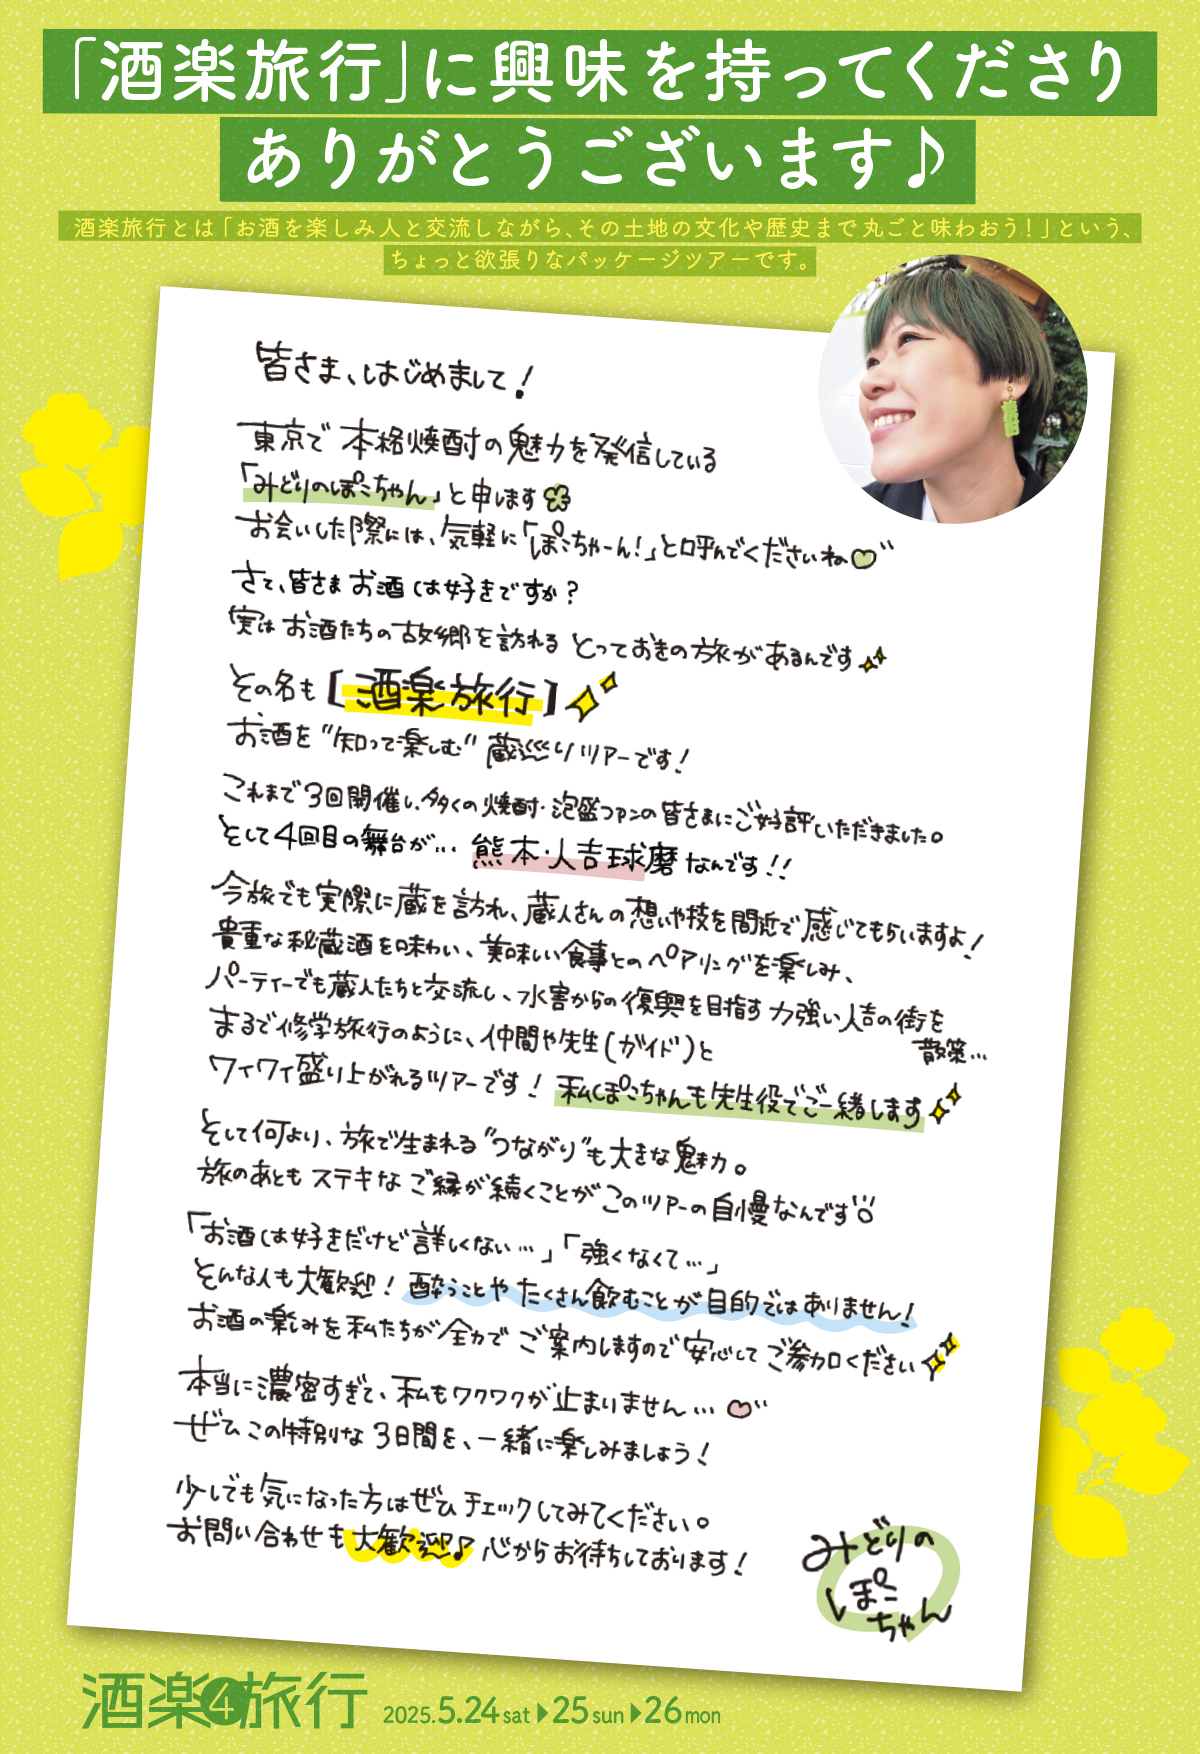 「酒楽旅行」に興味を持ってくださり
ありがとうございます♪
酒楽旅行とは「お酒を楽しみ人と交流しながら、その土地の文化や歴史まで丸ごと味わおう！」という、
ちょっと欲張りなパッケージツアーです。
皆さま、はじめまして！
東京で本格焼酎の魅力を発信している
「みどりのぽこちゃん」と申します
お会いした際には、気軽に「ぽこちゃーん！」と呼んでくださいね
さて、皆さまお酒は好きですか？
実はお酒たちの故郷を訪れるとっておきの旅があるんです
その名も【酒楽旅行】
お酒を"知って楽しむ"蔵巡りツアーです！
これまで3回開催し、多くの焼酎・泡盛ファンの皆さまにご好評いただきました。
そして4回目の舞台が… 熊本・人吉球磨なんです！！
今旅でも実際に蔵を訪れ、蔵人さんの想いや技を間近で感じてもらいますよ！
貴重な秘蔵酒を味わい、美味しい食事とのペアリングを楽しみ、
パーティーでも蔵人たちと交流し、水害からの復興を目指す力強い人吉の街を
散策…
まるで修学旅行のように、仲間や先生(ガイド)と
ワイワイ盛り上がれるツアーです！私ぽこちゃんも先生役でご一緒します
そして何より、旅で生まれる"つながり"も大きな魅力。
旅のあともステキなご縁が続くことがこのツアーの自慢なんです
「お酒は好きだけど詳しくない…」「強くなくて…」
そんな人も大歓迎！酔うことやたくさん飲むことが目的ではありません！
お酒の楽しみを私たちが全力でご案内しますので安心してご参加ください
本当に濃密すぎて、私もワクワクが止まりません…
ぜひこの特別な3日間を、一緒に楽しみましょう！
少しでも気になった方はぜひチェックしてみてください。
お問い合わせも大歓迎♪心からお待ちしております！
みどりの
ぽこ
ちゃん
酒楽4旅行 2025.5.24sat▶25sun▶26mon